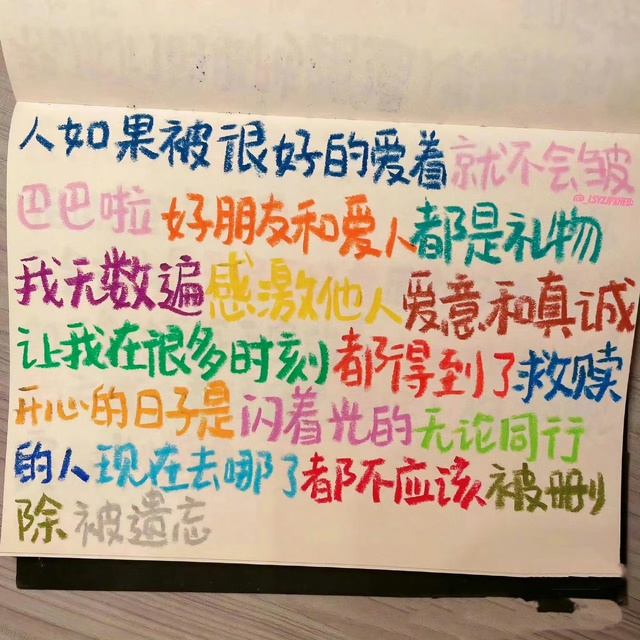 人如果被很好的爱着就不会皱
巴巴啦 好朋友和爱人都是礼物
我无数遍感激他人爱意和真诚
让我在很多时刻都得到了救赎
开心的日子是闪着光的无论同行
的人现在去哪了都不应该被删
除被遗忘